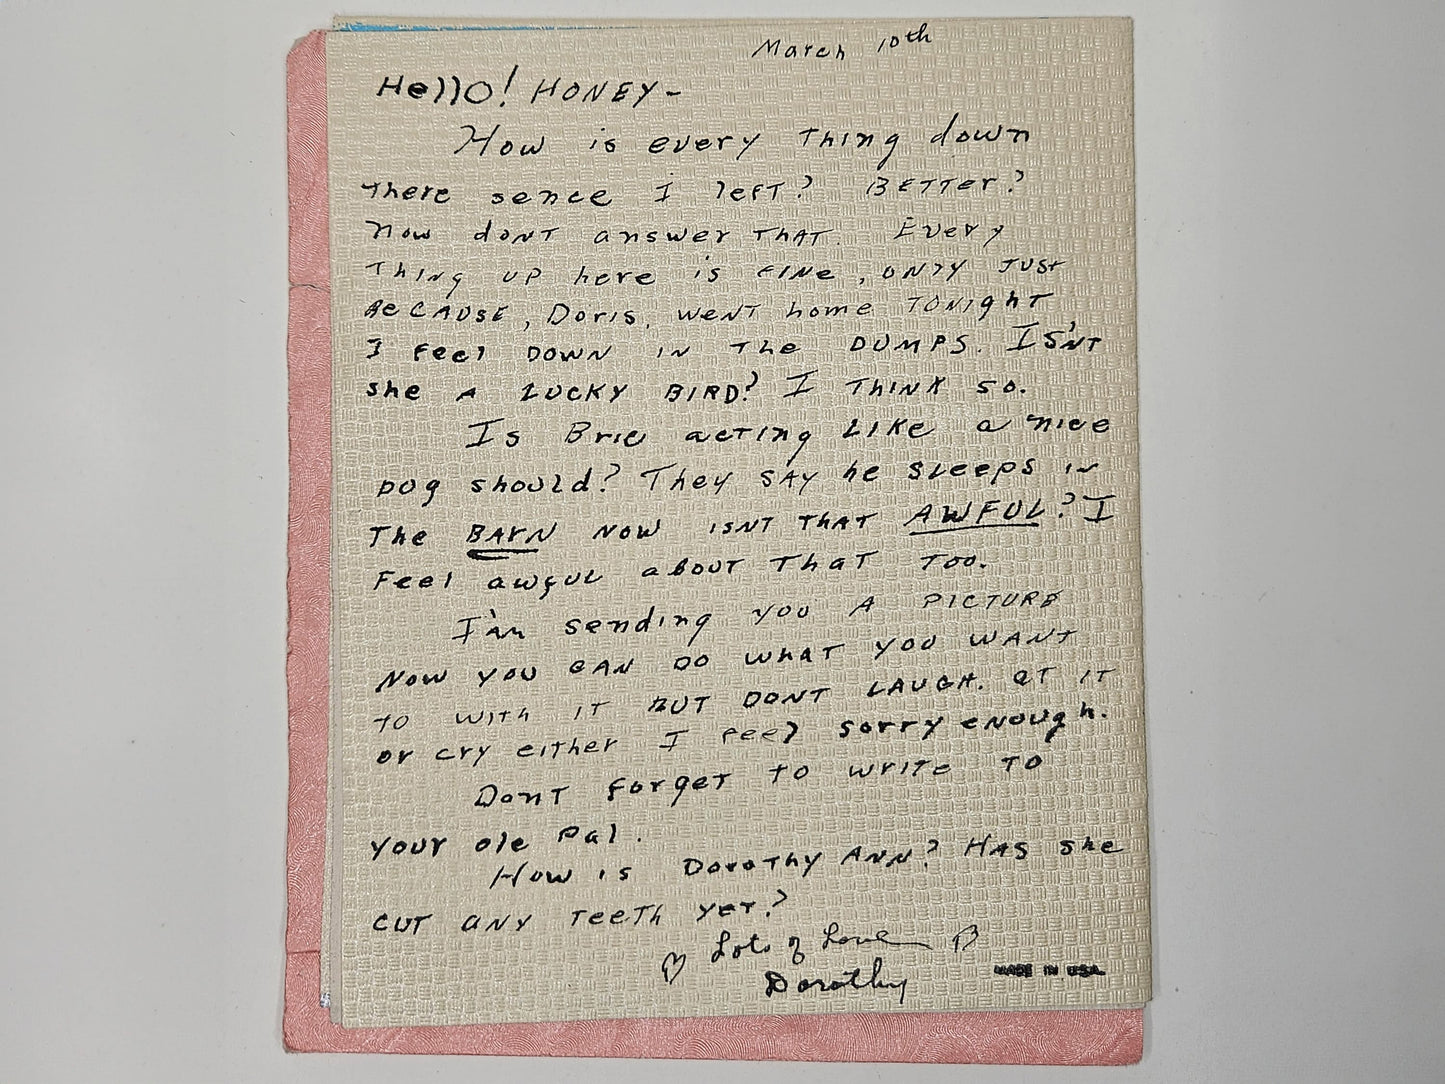 March 10th
Hello! HONEY-
How is every Thing down
There sence I left? BETTer?
now donT answer THAT. Every
THing UP here is FINe, ONly JUST
BeCAUSE, Doris, weNT home TONight
I Feel DOWN IN The DUMPS. ISN'T
she A LUCKY BIRD? I THINK SO.
Is Brie acTing LIKe a nice
Dog should? They SAY he SLeePS IN
THe BARN NOW ISNT THAT AWFUL? I
Feel awful aboUT THaT Too.
I'am sending you A PICTURE
NOW you CAN DO WHAT YOU WANT
TO WITH IT BUT DONT LAUGH. aT IT
or cry eiTHer I Feel sorry enough.
DonT ForgeT To wriTe TO
your ole Pal.
How is DoroThy ANN? HAS she
CUT ANY TeeTh YeT?
Lots of Love
Dorothy
MADE IN USA.